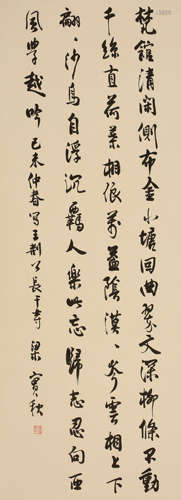 梵館清閑側布金小塘回曲翠文深柳條不動
千絲直荷葉相依萬蓋陰漠〻岑雲相上下
翩〻沙鳥自浮沉羈人樂此忘歸志忍向西
風學越吟 己未仲春寫王荊公長干寺 梁實秋